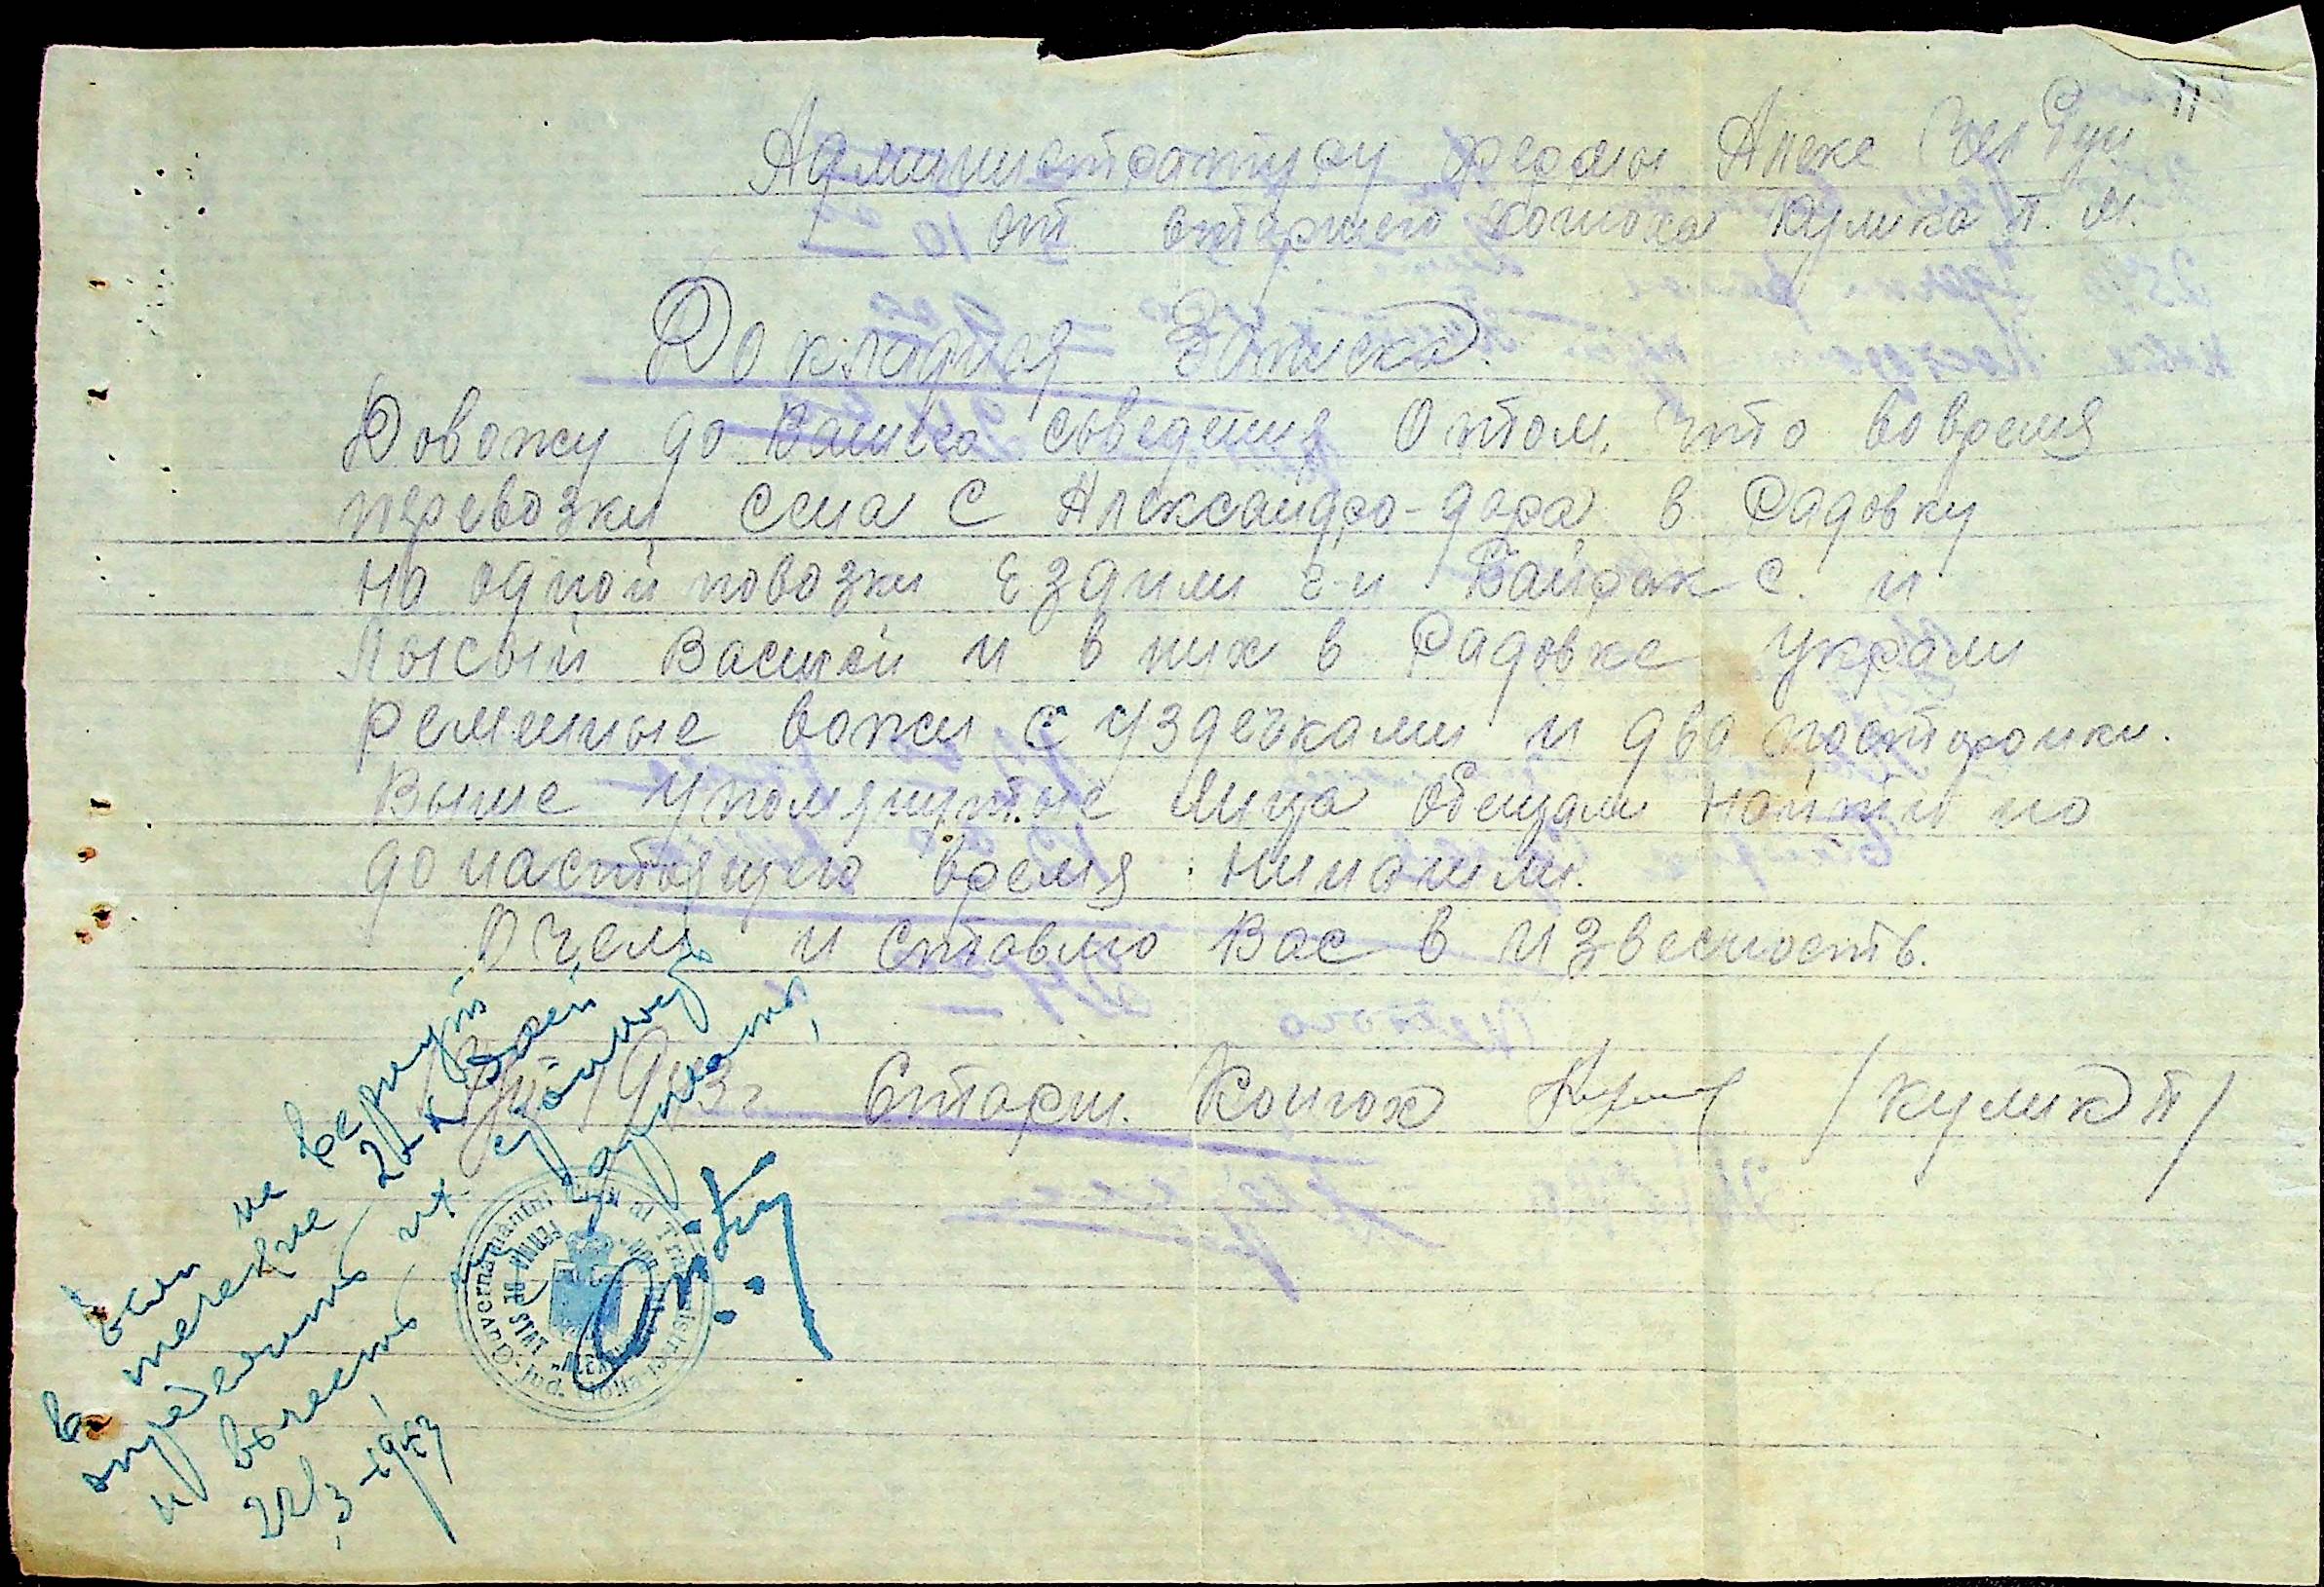 Администратору фермы Алексе
от старшего конюха Кулика П. М.
Докладная Записка.
Довожу до Вашего соведения О том, что во время
перевозки сена с Александро-дара в Радовку
на одной повозки ездили г-н Байрак С. и
Лысый Василий и в них в Радовке украли
ременные вожи с уздечками и два посторонки.
Выше упомянутые лица обещали найти но
до настоящего время ненашли.
О чем и ставлю Вас в извесность.
1943 г Старш. Конюх /Кулик П/
Если не вернут
в течение 2х дней
определить их стоимость
и взыскать
22/3-1943